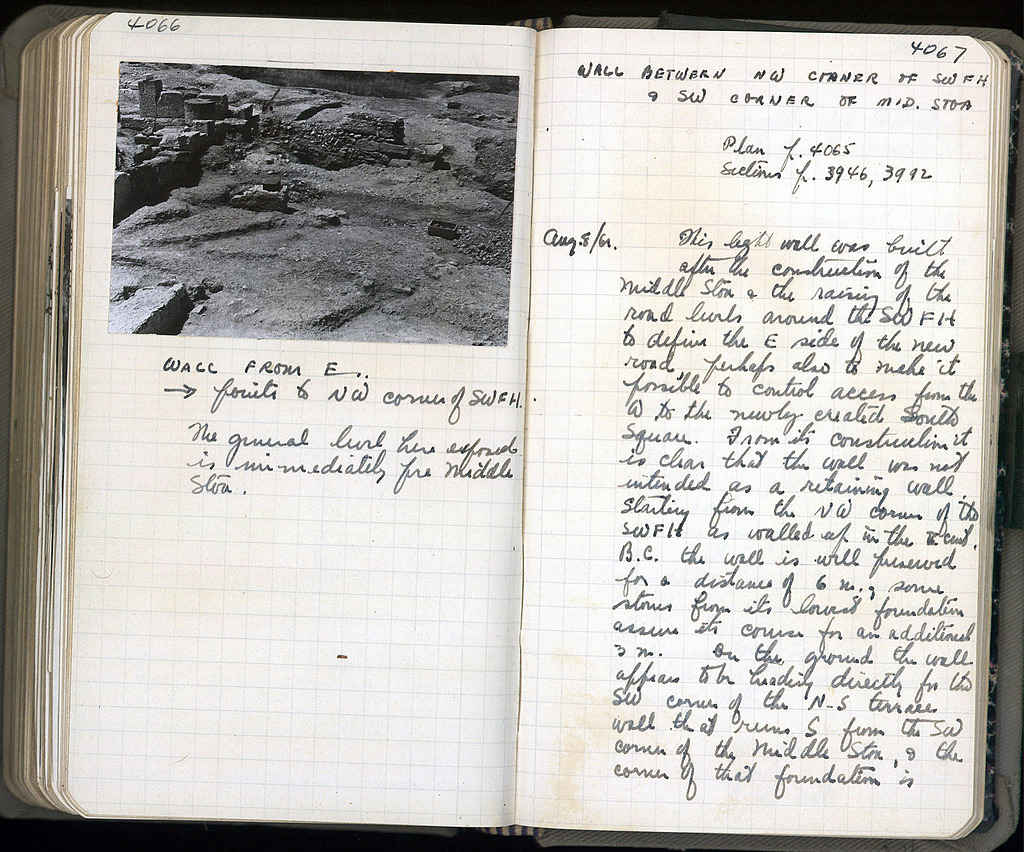 4066
WALL FROM E.
→ points to NW corner of SWFH.
The general level here exposed
is immediately pre Middle
Stoa.
4067
WALL BETWEEN NW CORNER OF SWFH
& SW CORNER OF MID. STOA
Plan p. 4065
Sections p. 3946, 3992
Aug. 8/61. This light wall was built
after the construction of the
Middle Stoa & the raising of the
road levels around the SWFH
to define the E side of the new
road, perhaps also to make it
possible to control access from the
W to the newly created South
Square. From its construction it
is clear that the wall was not
intended as a retaining wall.
Starting from the NW corner of the
SWFH as walled up in the cent.
B.C. the wall is well preserved
for a distance of 6 m. & some
stones from its lowest foundation
assure its course for an additional
3 m. On the ground the wall
appears to be heading directly for the
SW corner of the N-S terrace
wall that runs S from the SW
corner of the Middle Stoa, & the
corner of that foundation is